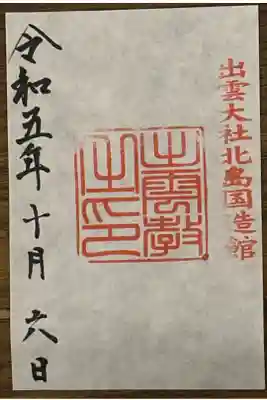 出雲大社北島国造館
出雲教
之印
令和五年十月六日